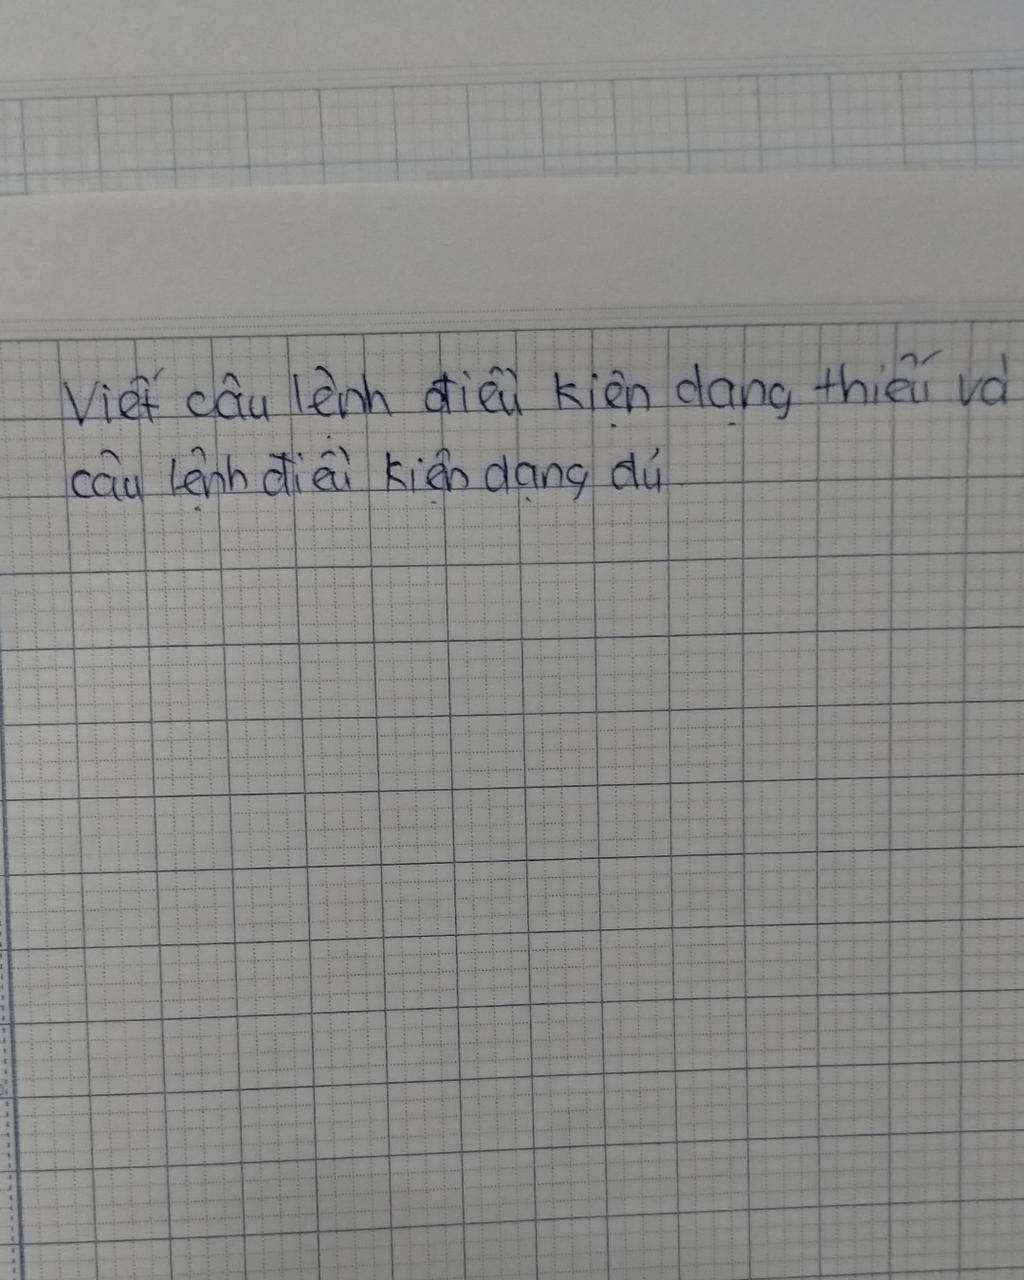 Viết câu lệnh điều kiện dạng thiếu và
câu lệnh điều kiện dạng đủ